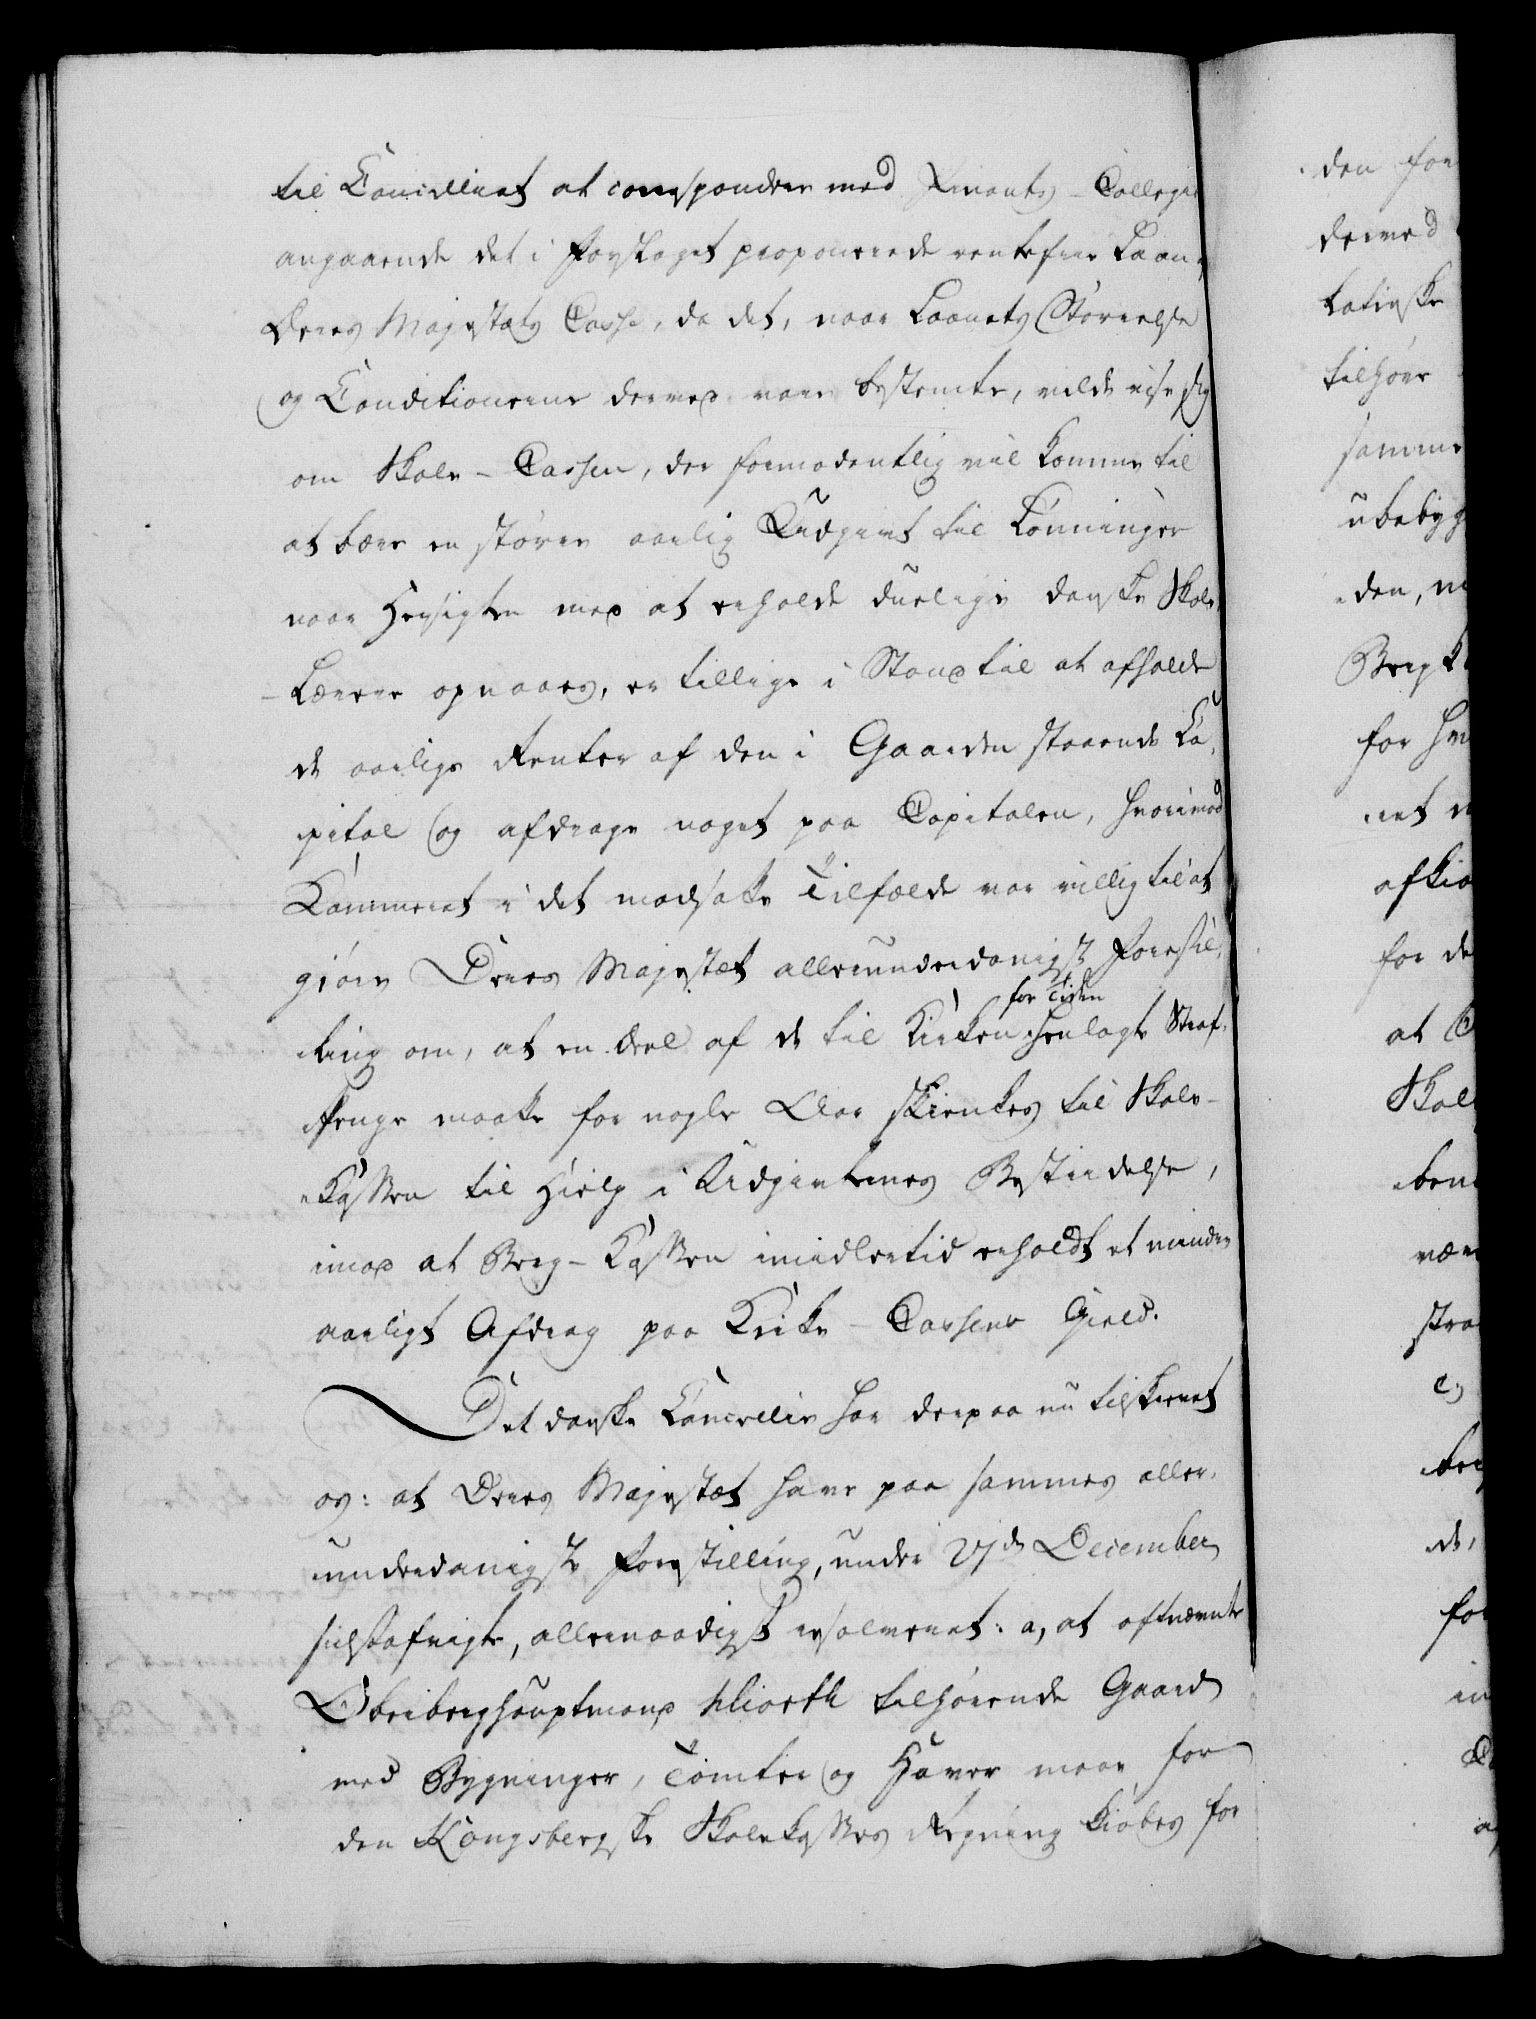 til Cancelliet at correspondere med Finants-Collegie
angaaende det i Forslaget proponerede rentefrie Laan
Deres Majestæts Casse, da det, naar Laanets Størrelse
og Conditionerne derved vare bestemte, vilde vise sig
om Skole-Cassen, der formodentlig vil komme til
at bære en større aarlig Udgivt til Lønninger
naar Hensigten med at erholde duelige danske Skole-
-Lærere opnaaes, er tillige i Stand til at afholde
de aarlige Renter af den i Gaarden staaende Ca-
pital og afdrage noget paa Capitalen, hvorimod
Kammeret i det modsatte Tilfælde var villig til at
gjøre Deres Majestæt allerunderdanigst Forestil-
ling om, at en Deel af de til Kirken for Tiden henlagte Straf-
Penge maatte for nogle Aar skienkes til Skole-
-Kassen til Hielp i Udgivternes Bestridelse,
imod at Berg-Kassen imidlertid erholdt et mindre
aarligt Afdrag paa Kirke-Cassens Gield.
Det danske Cancellie har derpaa nu tilskrevet
os: at Deres Majestæt have paa sammes aller-
underdanigste Forestilling, under 27de December
sidstafvigte, allernaadigst resolveret: a, at oftnævnte
Oberberghauptmand Hiorth tilhørende Gaard
med Bygninger, Tomter og Haver maae for
den Kongsbergske Skolekasses Regning kiøbes for
den for
derved
latinske
tilhøre
samme
ubebyg
den,
for
at
Skol